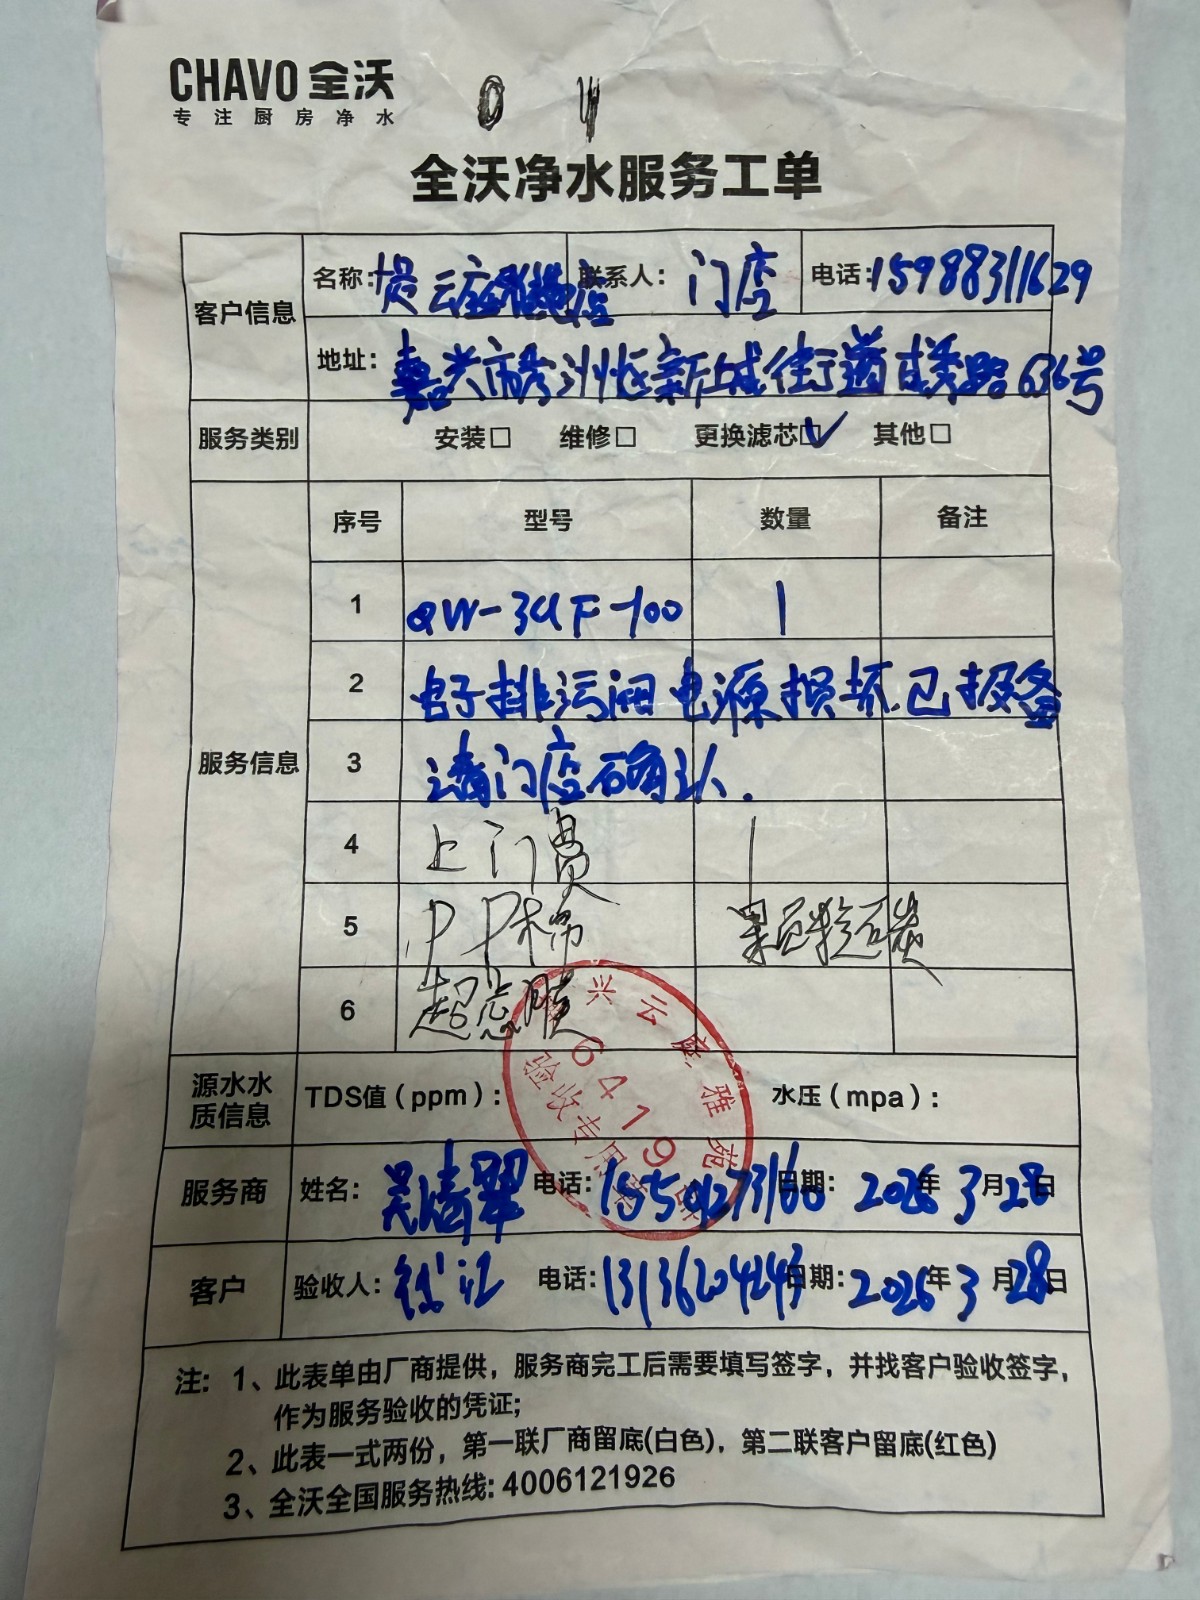 CHAVO 全沃
专注厨房净水
全沃净水服务工单
客户信息 名称: 云庭 联系人: 门店 电话: 15988311629
地址: 嘉兴市秀洲区新城街道成秀路636号
服务类别 安装□ 维修□ 更换滤芯□✓ 其他□
服务信息 序号 型号 数量 备注
1 QW-3UF-100 1
2 电子排污阀电源损坏已报备
3 请门店确认.
4 上门费 1
5 PP棉 颗粒炭
6 超滤膜
兴云庭雅苑店
6419
验收专用章
源水水质信息 TDS值(ppm): 水压(mpa):
服务商 姓名: 电话: 日期: 2026年3月28日
客户 验收人: 电话: 13136204243 日期: 2026年3月28日
注: 1、此表单由厂商提供，服务商完工后需要填写签字，并找客户验收签字，
作为服务验收的凭证;
2、此表一式两份，第一联厂商留底(白色)，第二联客户留底(红色)
3、全沃全国服务热线: 4006121926